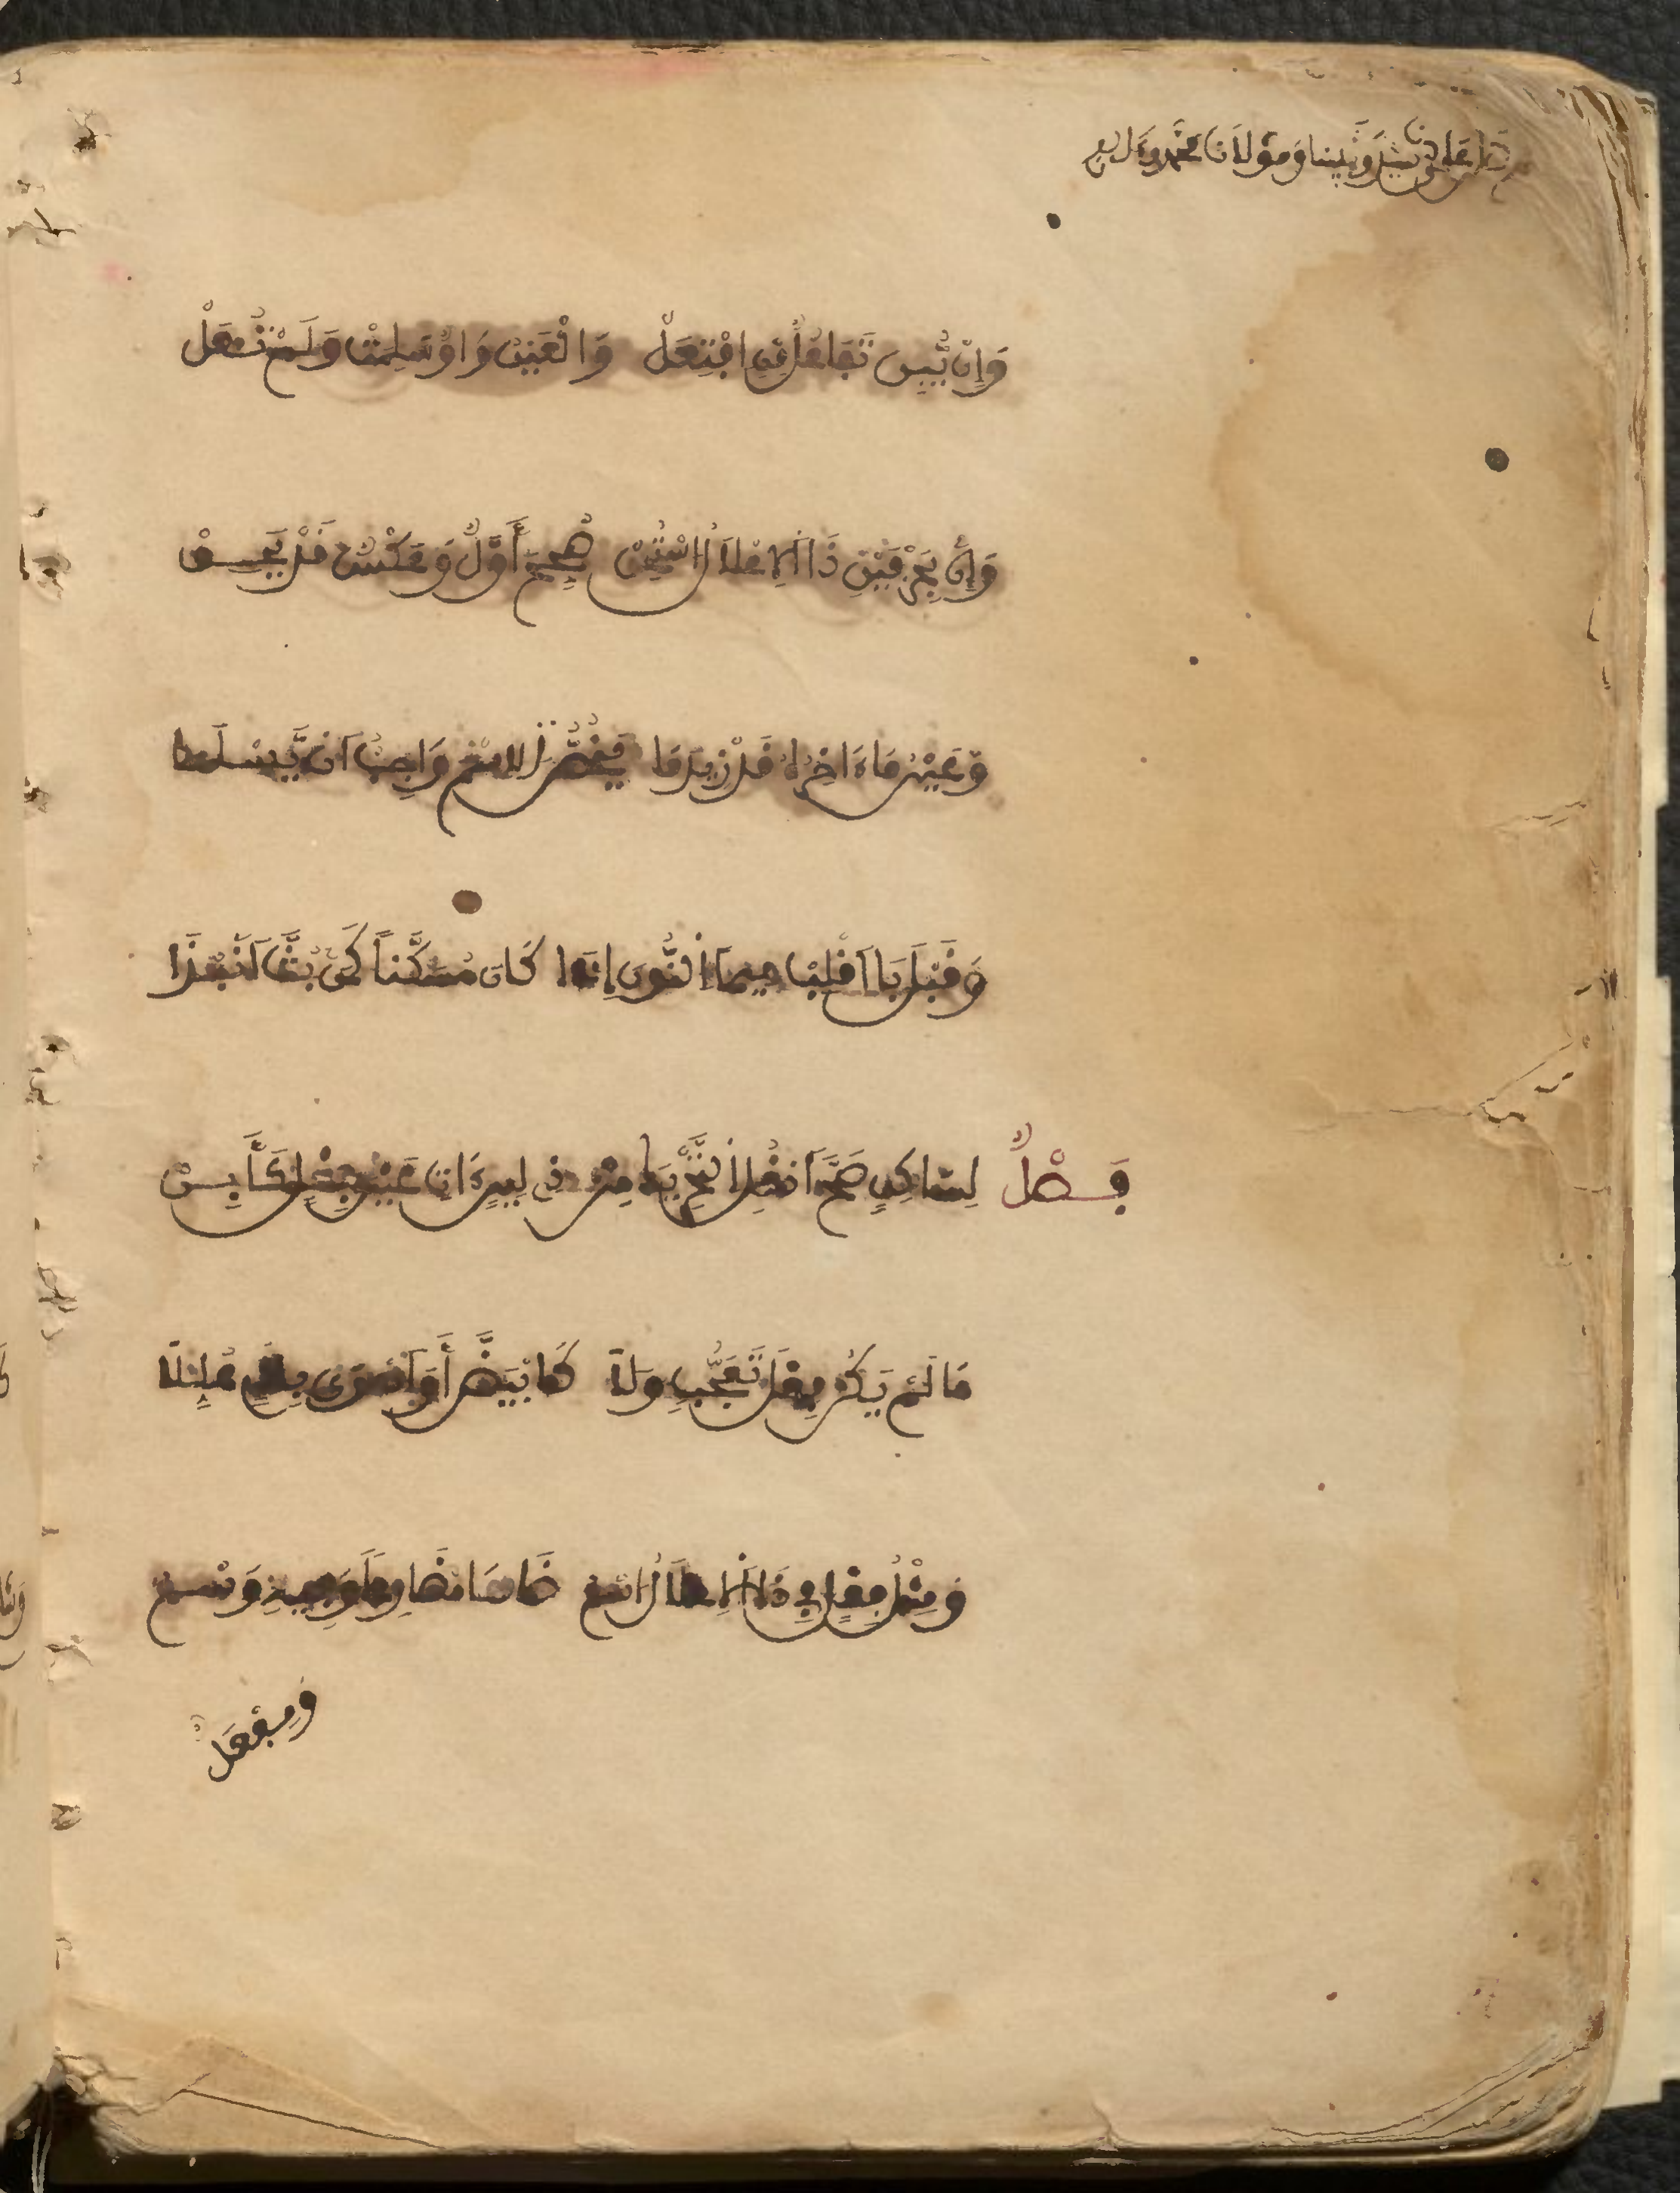 سيدنا ونبينا ومولانا محمد وعلى
وَإِن يَّبِن تَفَاعُلٌ مِنِ افْتَعَلْ وَالْعَيْنُ وَاوٌ سَلِمَتْ وَلَمْ تُعَلْ
وَإِن بِحَرْفَيْنِ ذَا الإِعْلَالُ اسْتُحِقْ صُحِّحَ أَوَّلٌ وَعَكْسٌ قَدْ يَحِقْ
وَعَيْنُ مَا ءَاخِرُهُ قَدْ زِيدَ مَا يَخُصُّ الِاسْمَ وَاجِبٌ أَن يَّسْلَمَا
وَقَبْلَ بَا اقْلِبْ مِيمًا النُّونَ إِذَا كَانَ مُسَكَّنًا كَمَن بَتَّ انْبِذَا
فَصْلٌ لِسَاكِنٍ صَحَّ انْقُلِ التَّحْرِيكَ مِنْ ذِي لِينٍ ءَاتٍ عَيْنَ فِعْلٍ كَأَبِنْ
مَا لَمْ يَكُنْ فِعْلَ تَعَجُّبٍ وَلَا كَابْيَضَّ أَوْ أَهْوَى بِلَامٍ عُلِّلَا
وَمِثْلُ فِعْلٍ فِي ذَا الإِعْلَالِ اسْمُ ضَاهَا مُضَارِعًا وَفِيهِ وَسْمُ
وَمِفْعَلٌ